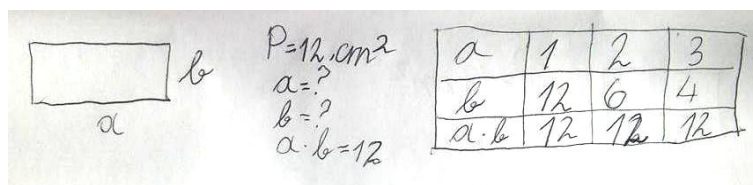 b
a
P=12.cm²
a=?
b=?
a·b=12
a 1 2 3
b 12 6 4
a·b 12 12 12